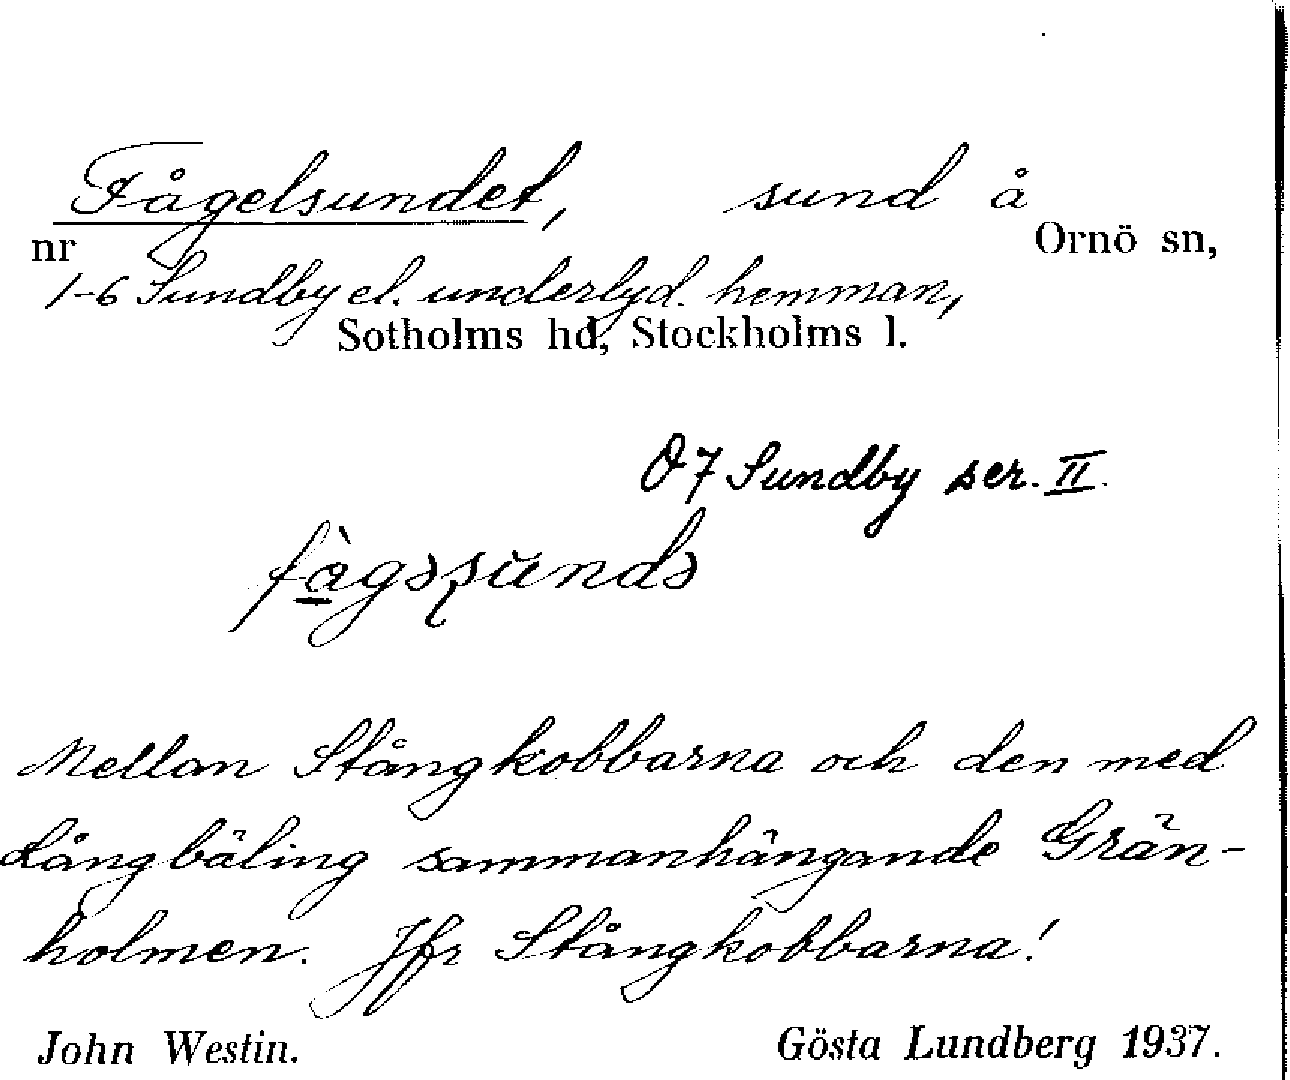 Fågelsundet, sund å
nr Ornö sn,
1-6 Sundby el. underlyd. hemman,
Sotholms hd, Stockholms l.
Ö7 Sundby ser. II.
Mellan Stångkobbarna och den med
Långbäling sammanhängande Grän-
holmen. Jfr Stångkobbarna!
John Westin. Gösta Lundberg 1937.